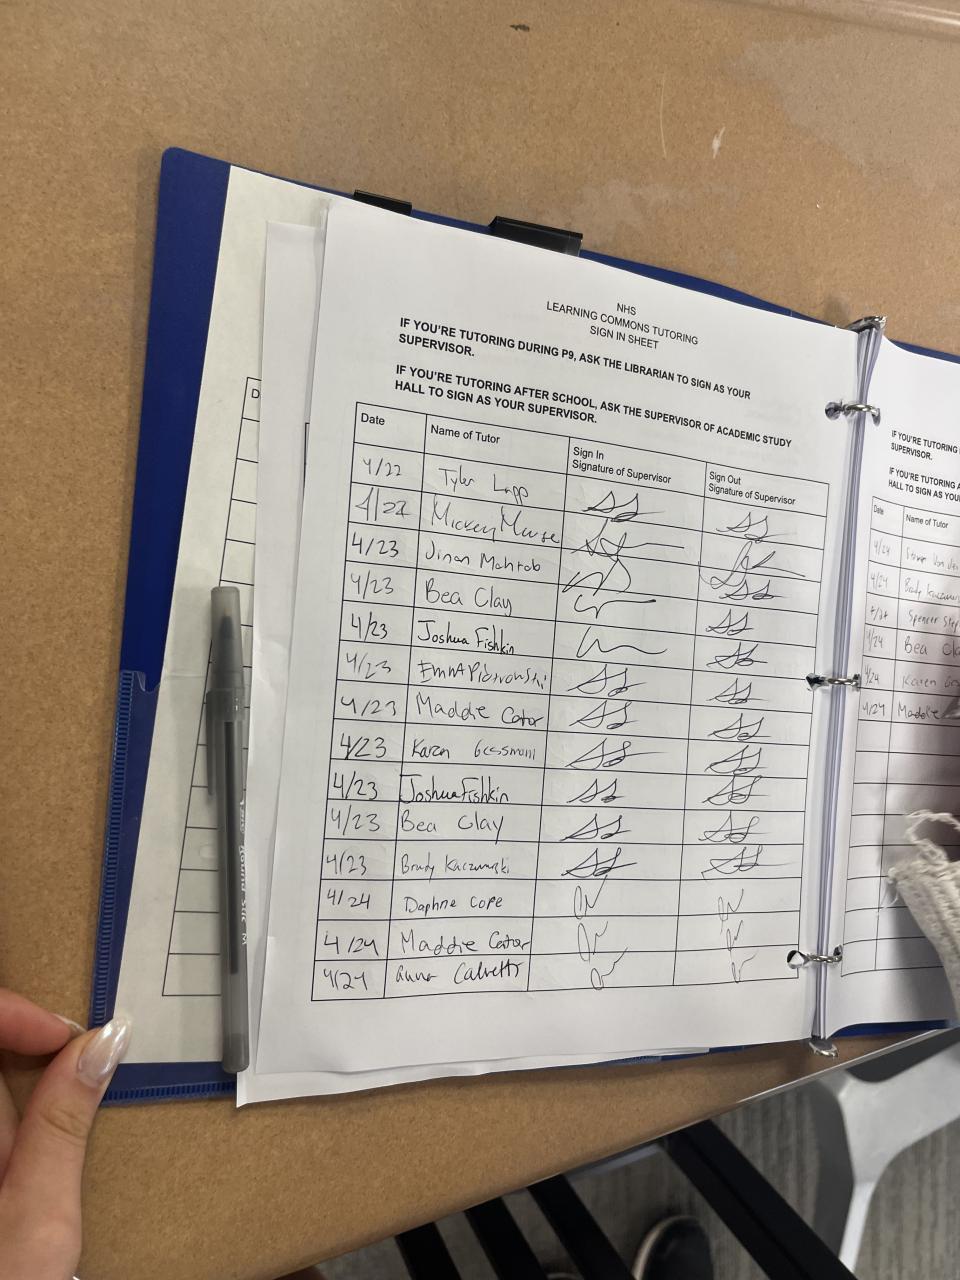 NHS
LEARNING COMMONS TUTORING
SIGN IN SHEET
IF YOU'RE TUTORING DURING P9, ASK THE LIBRARIAN TO SIGN AS YOUR
SUPERVISOR.
IF YOU'RE TUTORING AFTER SCHOOL, ASK THE SUPERVISOR OF ACADEMIC STUDY
HALL TO SIGN AS YOUR SUPERVISOR.
Date Name of Tutor Sign In Signature of Supervisor Sign Out Signature of Supervisor
4/22 Tyler Lapp
4/22 Mickey Mouse
4/23 Jinan Mahtab
4/23 Bea Clay
4/23 Joshua Fishkin
4/23 Emma Piotrowski
4/23 Maddie Cator
4/23 Karen
4/23 Joshua Fishkin
4/23 Bea Clay
4/23 Brady Kaczmarski
4/24 Daphne Cope
4/24 Maddie Cator
4/24 Anna Calvetti
D
IF YOU'RE TUTORING
SUPERVISOR.
IF YOU'RE TUTORING
HALL TO SIGN AS YOU
Date Name of Tutor
4/24
4/24 Brady
Spencer
4/24 Bea
4/24 Karen
4/24 Maddie